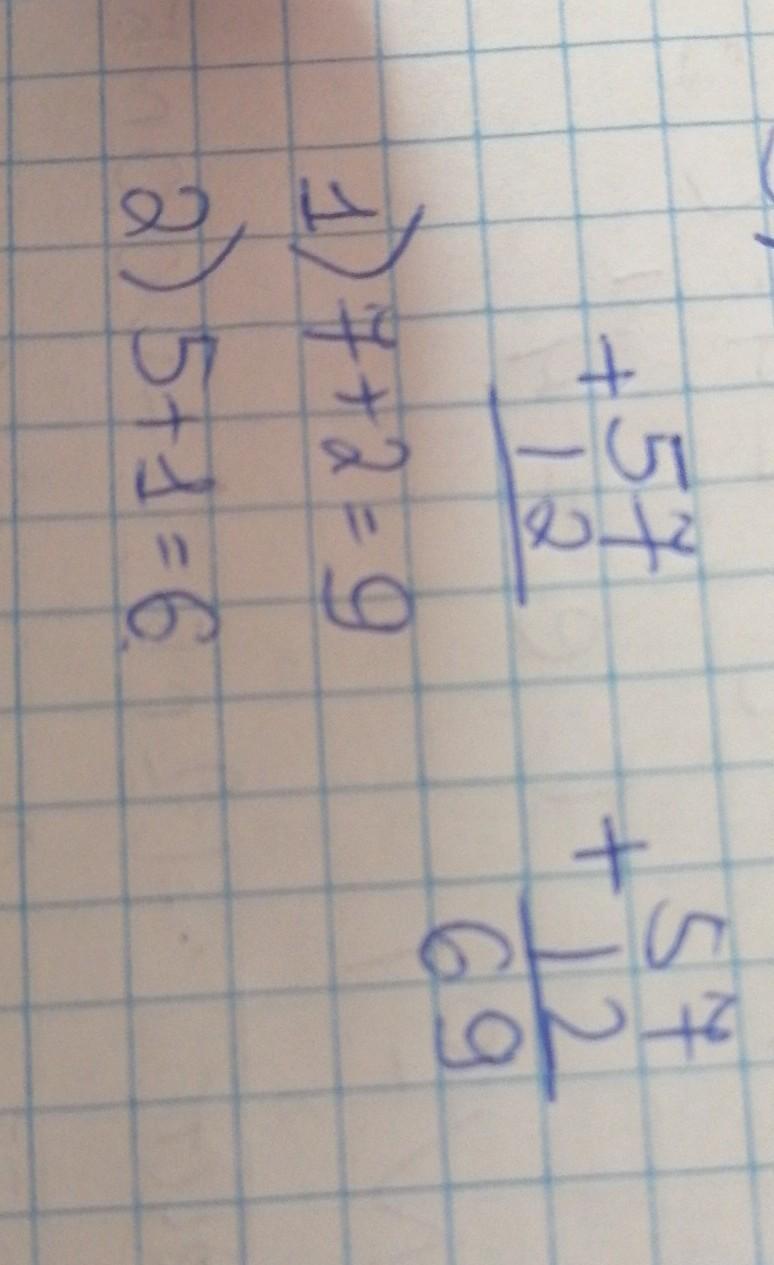 +57 +57
12 12
69
1) 7+2=9
2) 5+1=6